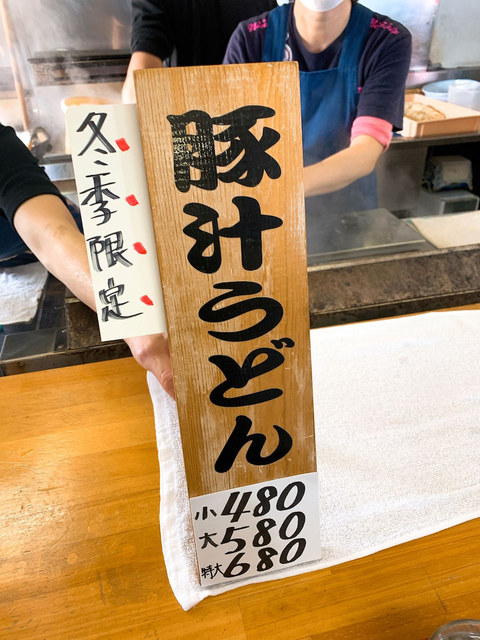 冬季限定
豚汁うどん
小 480
大 580
特大 680